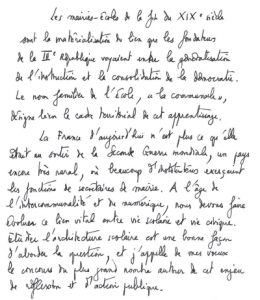 Les mairies-écoles de la fin du XIXe siècle
sont la matérialisation du lien que les fondateurs
de la IIIe République voyaient entre la généralisation
de l'instruction et la consolidation de la démocratie.
Le nom familier de l'école, « la communale »,
désigne bien le cadre territorial de cet apprentissage.
La France d'aujourd'hui n'est plus ce qu'elle
était au sortir de la Seconde Guerre mondiale, un pays
encore très rural, où beaucoup d'instituteurs exerçaient
les fonctions de secrétaires de mairie. A l'âge de
l'intercommunalité et du numérique, nous devons faire
évoluer ce lien vital entre vie scolaire et vie civique.
Étudier l'architecture scolaire est une bonne façon
d'aborder la question, et j'appelle de mes vœux
le concours du plus grand nombre autour de cet enjeu
de réflexion et d'action publique.